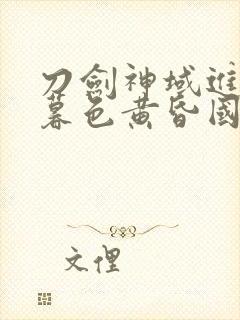 刀劍神域進
暮色黄昏國
文俚